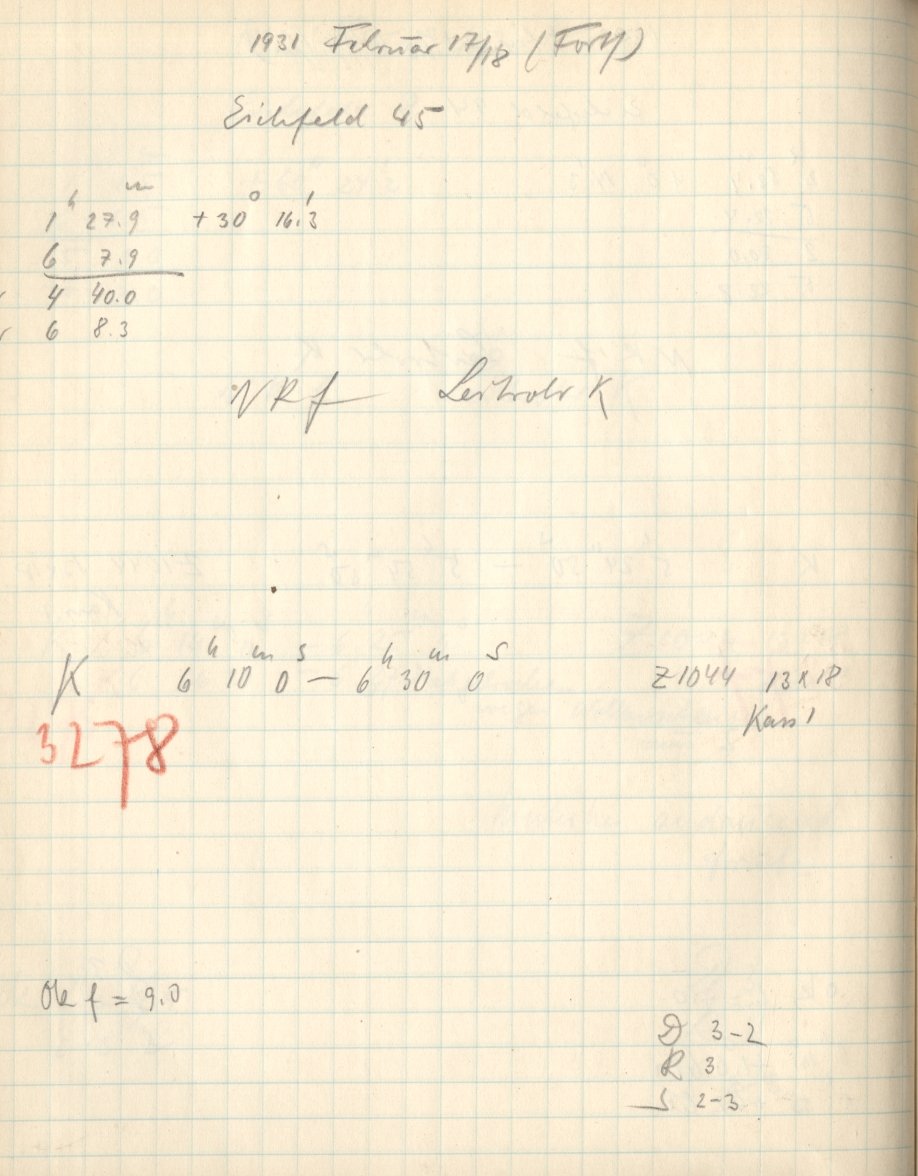 1931 Februar 17/18 (Forts)
Eichfeld 45
1ʰ 27.9ᵐ +30° 16.'3
6 7.9
4 40.0
6 8.3
NRf Leitrohr K
K 6ʰ 10ᵐ 0ˢ — 6ʰ 30ᵐ 0ˢ Z1044 13x18
Kass 1
3278
Ok f = 9.0
D 3-2
R 3
S 2-3